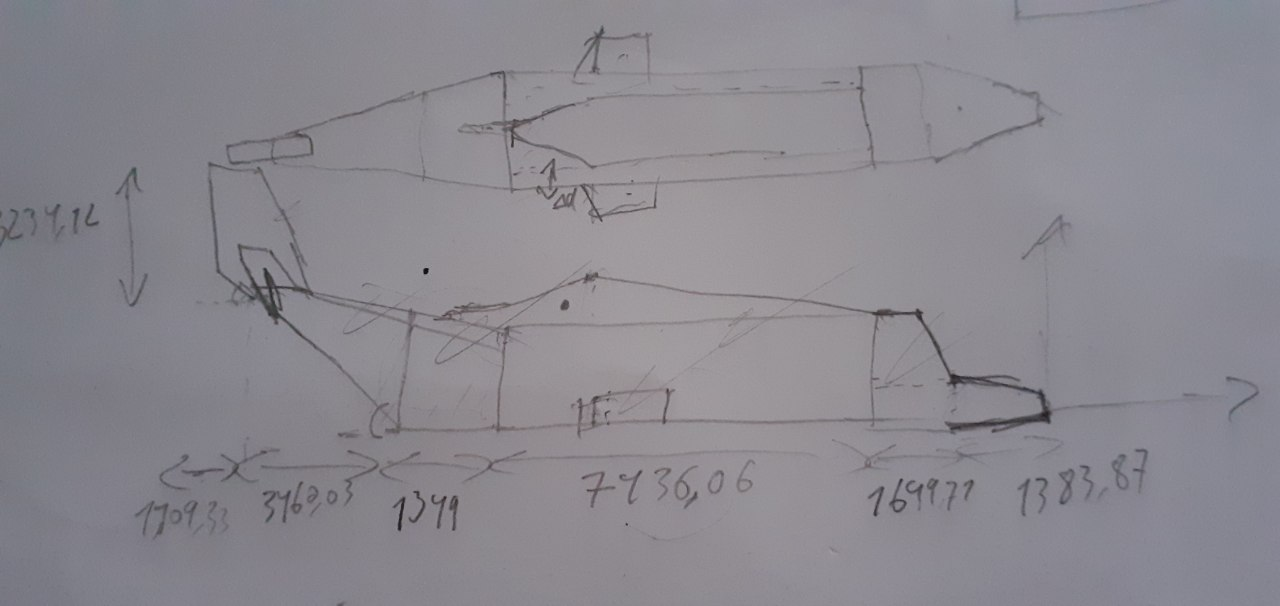 3234,12
Δd
1709,33
3460,03
1349
7436,06
1649,77
1383,87